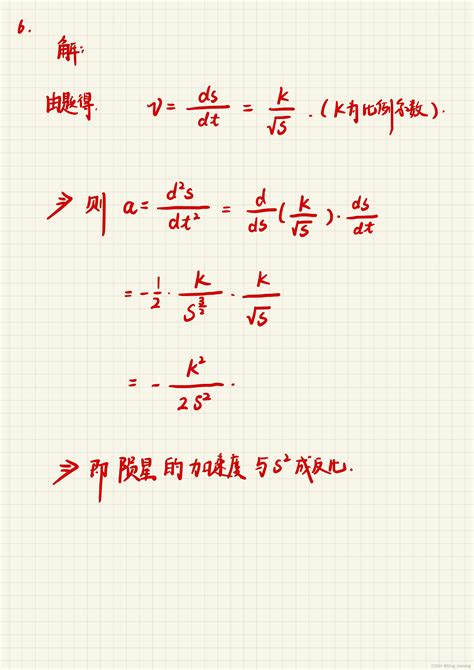 6.
解:
由题得. v = ds/dt = k/√s . (k为比例系数).
⇒ 则 a = d²s/dt² = d/ds (k/√s) · ds/dt
= -1/2 · k/s^(3/2) · k/√s
= - k²/2s² .
⇒ 即陨星的加速度与s²成反比.